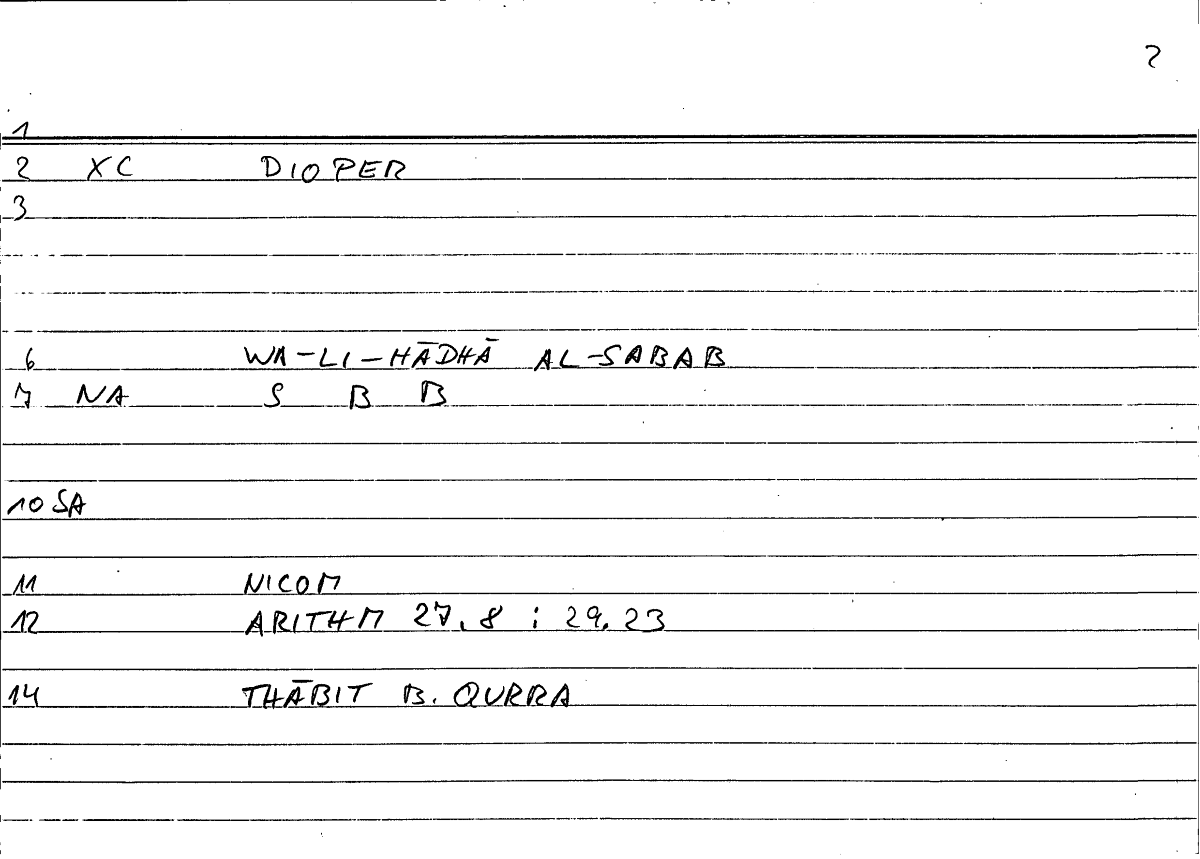 2
1
2 XC DIOPER
3
6 WA-LI-HĀDHĀ AL-SABAB
7 NA S B B
10 SA
11 NICOM
12 ARITHM 27,8 ; 29,23
14 THĀBIT B. QURRA